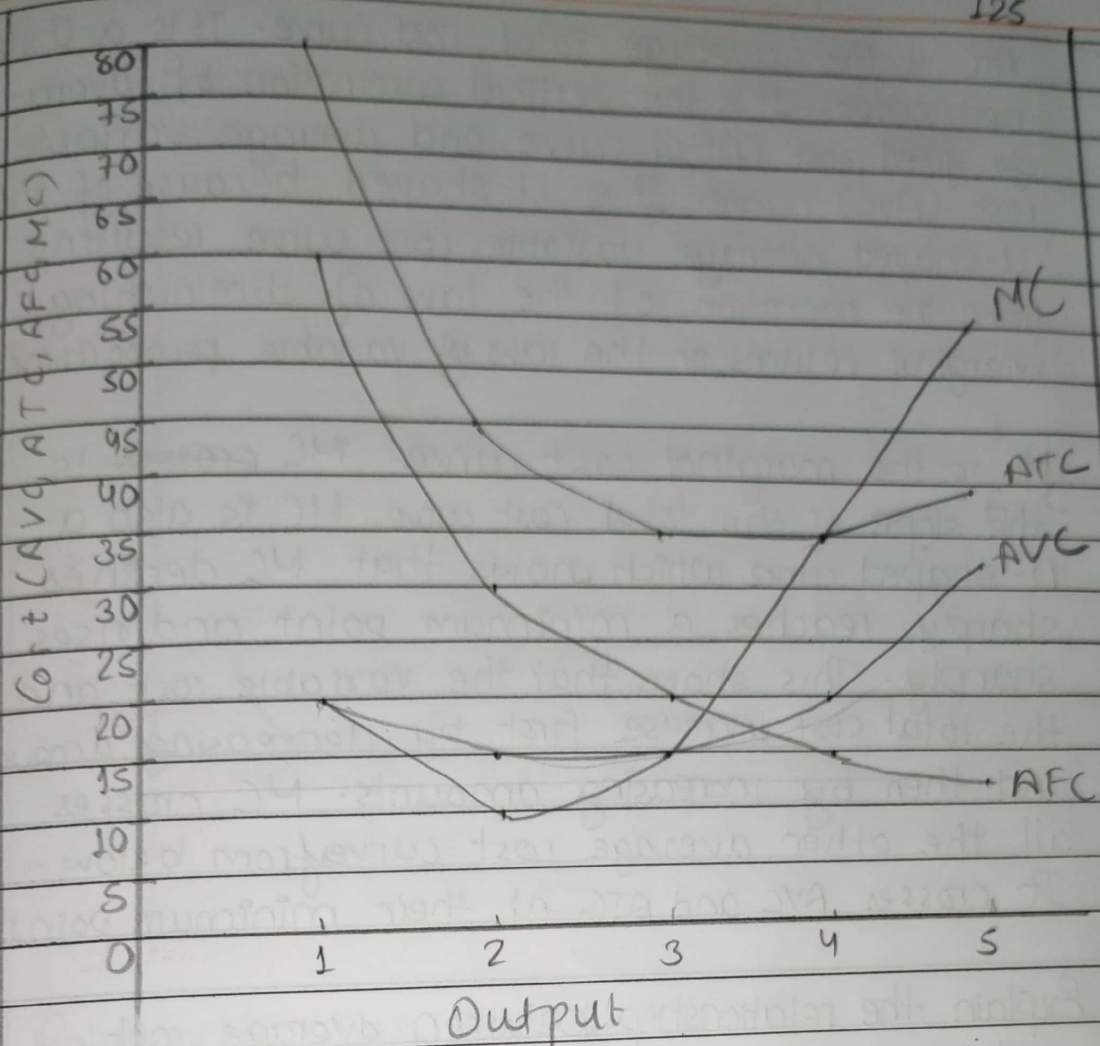 125
80
75
70
65
60
55
50
45
40
35
30
25
20
15
10
5
0
Cost (AVC, ATC, AFC, MC)
MC
ATC
AVC
AFC
1 2 3 4 5
Output